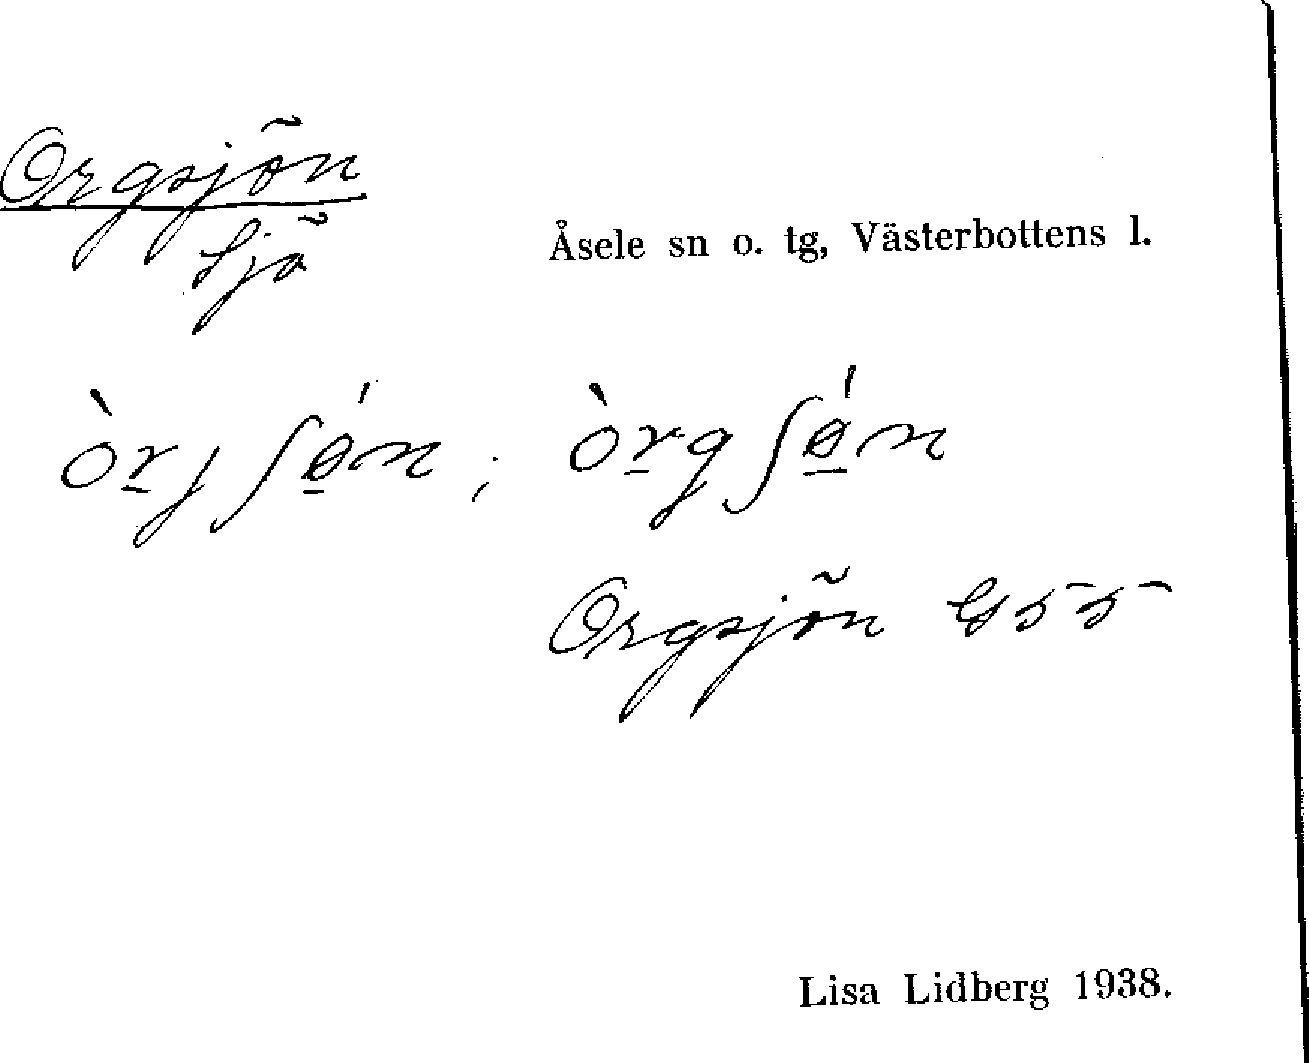 Orgsjön
Sjö
Åsele sn o. tg, Västerbottens l.
òrj ʃǿn ; òrg ʃǿn
Orgsjön G55
Lisa Lidberg 1938.